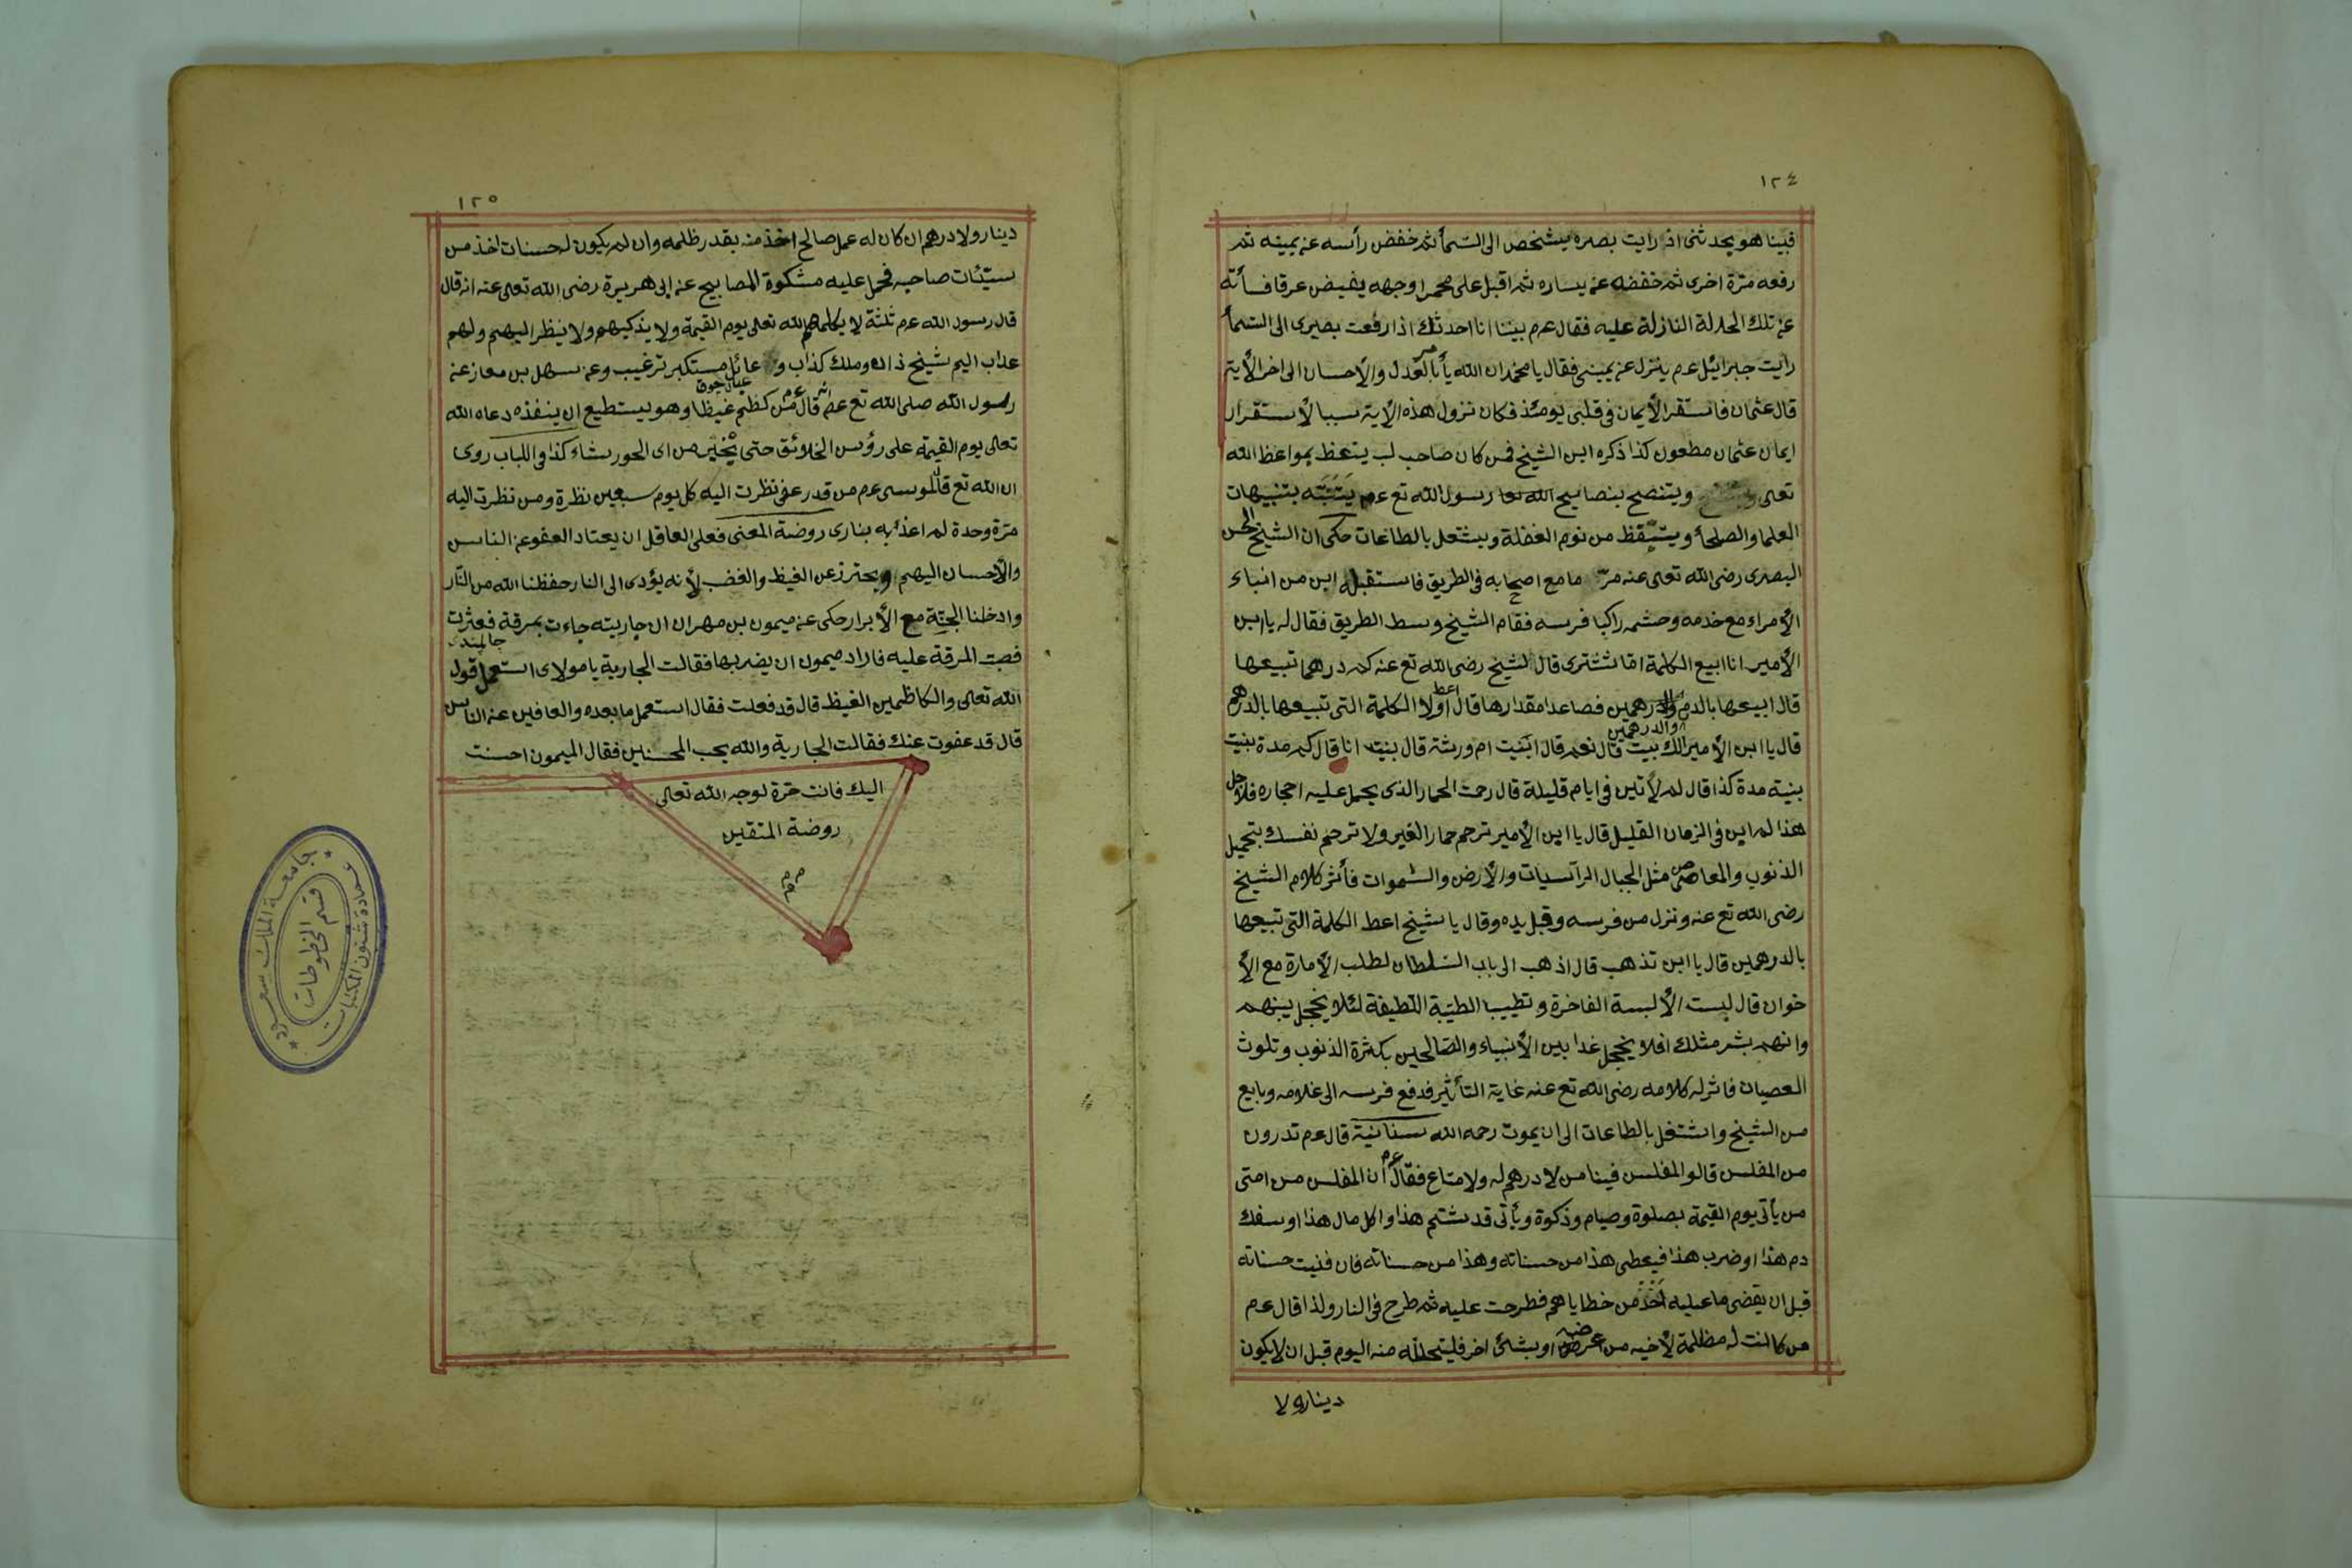 ١٢٤
فبينا هو يحدثنى اذ رايت بصره يشخص الى السّمأ ثم خفض رأسه عن يمينه ثم
رفعه مرّة اخرى ثم خفضه عن يساره ثم اقبل على محمرا وجهه يفيض عرقا فسأته
عن تلك الحالة النازلة عليه فقال عم بينا انا احدثك اذا رفعت بصيرى الى السّمأ
رأيت جبرائيل عم ينزل عن يمينى فقال يا محمد ان الله يأمر بالعدل والأحسان الى اخر الأية
قال عثمان فاستقر الأيمان فى قلبى يومئذ فكان نزول هذه الأية سببا لأستقرار
ايمان عثمان مطعون كذا ذكره ابن الشيخ فمن كان صاحب لب يتعظ بمواعظ الله
تعالى ويتنصح بنصايح رسول الله تع عم يتنبّه بتنبيهات
العلما والصلحأ ويتيقظ من نوم الغفلة ويشتغل بالطاعات حكى ان الشيخ الحسن
البصرى رضى الله تعالى عنه مرّ ما مع اصحابه فى الطريق فاستقبله ابن من ابناء
الأمراء مع خدمه وحشمه راكبا فرسه فقام الشيخ وسط الطريق فقال له يا ابن
الأمير انا ابيع الكلمة اما تشترى قال لشيخ رضى الله تع عنه كم درهما تبيعها
قال ابيعها بالدرهم والدرهمين فصاعدا مقدارها قال اعط اولا الكلمة التى تبيعها بالدرهم
والدرهمين
قال يا ابن الأمير الك بيت قال نعم قال ابنيت ام ورثة قال بنيت انا قال كم مدة بنيت
بنية مدة كذا قال لم لأتبن فى ايام قليلة قال رحمت الحمار الذى يحمل عليه احجاره فلاجل
هذا لم ابن فى الزمان القليل قال يا ابن الأمير ترحم حمار الغير ولا ترحم نفسك بتحميل
الذنوب والمعاصى مثل الجبال الرآسيات والأرض والسّموات فأثر كلام الشيخ
رضى الله تع عنه ونزل من فرسه وقبل يده وقال يا شيخ اعط الكلمة التى تبيعها
بالدرهمين قال يا ابن تذهب قال اذهب الى باب السّلطان لطلب الأمارة مع الأ
خوان قال لبست الألبسة الفاخرة وتطيب الطيّبة اللطيفة لئلا يخجل بينهم
وانهم بشر مثلك افلا يخجل غدا بين الأنبياء والصّالحين بكثرة الذنوب وتلوث
العصيان فاثر له كلامه رضى الله تع عنه غاية التأثير فدفع فرسه الى غلامه وبايع
من الشيخ واشتغل بالطاعات الى ان يموت رحمه الله سنانية قال عم تدرون
من المفلس قالوا المفلس فينا من لا درهم له ولا متاع فقال عم ان المفلس من امتى
من يأتى يوم القيمة بصلوة وصيام وزكوة ويأتى قد شتم هذا واكل مال هذا او سفك
دم هذا او ضرب هذا فيعطى هذا من حسناته وهذا من حسناته فان فنيت حسناته
قبل ان يقضى ما عليه اخذ من خطاياهم فطرحت عليه ثم طرح فى النار ولذا قال عم
من كانت له مظلمة لأخيه من عرضه او بشئ اخر فليتحلله منه اليوم قبل ان لا يكون
دينار ولا
١٢٥
دينار ولا درهم ان كان له عمل صالح اخذ منه بقدر ظلمه وان لم يكون له حسنات اخذ من
سيّئات صاحبه فحمل عليه مشكوة المصابيح عن ابى هريرة رضى الله تعالى عنه انه قال
قال رسول الله عم ثلثة لا يكلمهم الله تعالى يوم القيمة ولا يذكيهم ولا ينظر اليهم ولهم
عذاب اليم شيخ زان وملك كذاب و عائل مستكبر ترغيب وعن سهل بن معاز عنه
عيال جوق
رسول الله صلى الله تع عم انه قال عم من كظم غيظا وهو يستطيع ان ينفذه دعاه الله
تعالى يوم القيمة على رؤس الخلائق حتى يخيّر من اى الحور شاء كذا فى اللباب روى
ان الله تع قال لموسى عم من قدر عفى نظرت اليه كل يوم سبعين نظرة ومن نظرت اليه
مرّة وحدة لم اعذبه بنارى روضة المعنى فعلى العاقل ان يعتاد العفو عن الناس
والأحسان اليهم ويحترز عن الغيظ والغضب لأنه يؤدى الى النار حفظنا الله من النّار
وادخلنا الجنّة مع الأبرار حكى عن ميمون بن مهران ان جاريته جاءت بمرقة فعثرت
فصبت المرقة عليه فاراد ميمون ان يضربها فقالت الجارية يا مولاى استعمل قول
الله تعالى والكاظمين الغيظ قال قد فعلت فقال استعمل ما بعده والعافين عن الناس
قال قد عفوت عنك فقالت الجارية والله يحب المحسنين فقال الميمون احسنت
اليك فانت حرّة لوجه الله تعالى
روضة المتقين
جامعة الملك سعود
عمادة شئون المكتبات
قسم المخطوطات